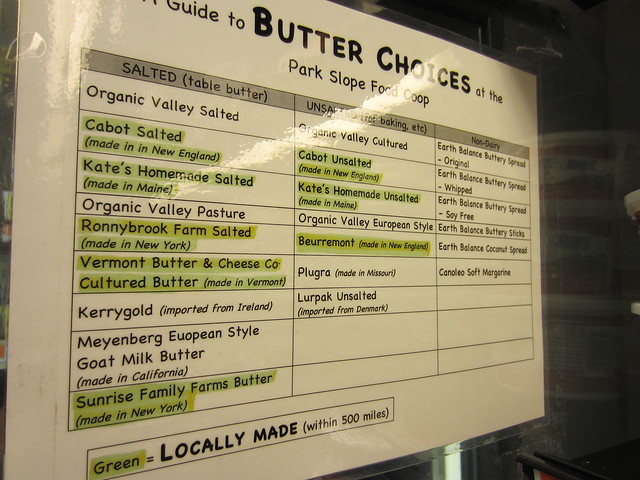 A Guide to BUTTER CHOICES at the
Park Slope Food Coop
SALTED (table butter)
Organic Valley Salted
Cabot Salted
(made in in New England)
Kate's Homemade Salted
(made in Maine)
Organic Valley Pasture
Ronnybrook Farm Salted
(made in New York)
Vermont Butter & Cheese Co
Cultured Butter (made in Vermont)
Kerrygold (imported from Ireland)
Meyenberg Euopean Style
Goat Milk Butter
(made in California)
Sunrise Family Farms Butter
(made in New York)
UNSALTED (for baking, etc)
Organic Valley Cultured
Cabot Unsalted
(made in New England)
Kate's Homemade Unsalted
(made in Maine)
Organic Valley European Style
Beurremont (made in New England)
Plugra (made in Missouri)
Lurpak Unsalted
(imported from Denmark)
Non-Dairy
Earth Balance Buttery Spread
- Original
Earth Balance Buttery Spread
- Whipped
Earth Balance Buttery Spread
- Soy Free
Earth Balance Buttery Sticks
Earth Balance Coconut Spread
Canoleo Soft Margarine
Green = LOCALLY MADE (within 500 miles)